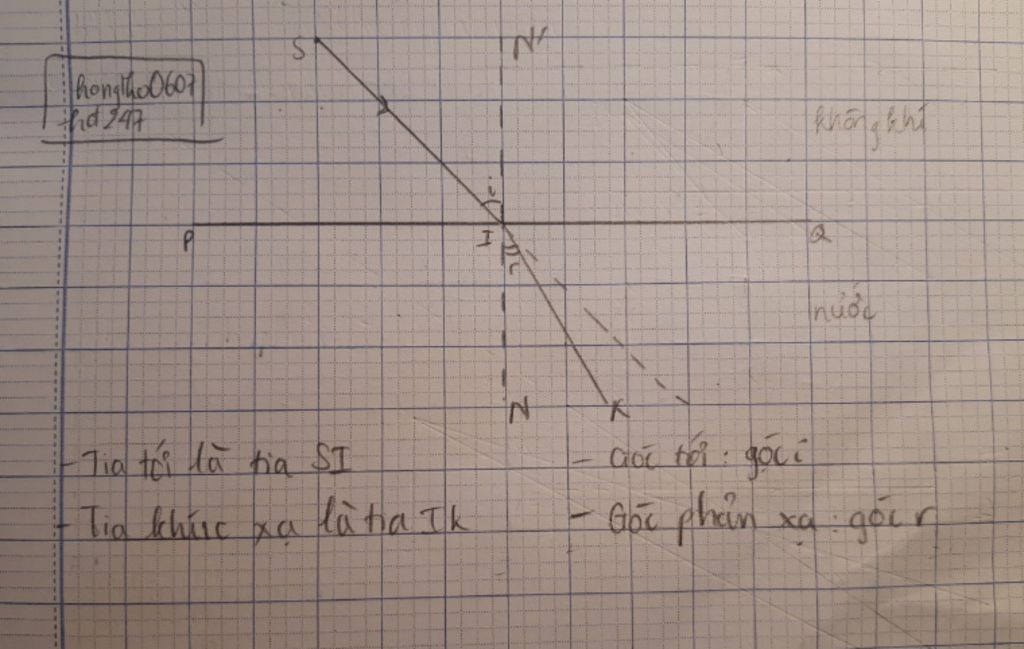 hongtho0607
hd247
S
N'
không khí
i
P
I
Q
r
nước
N
K
- Tia tới là tia SI
- Góc tới: góc i
- Tia khúc xạ là tia Ik
- Góc phản xạ: góc r